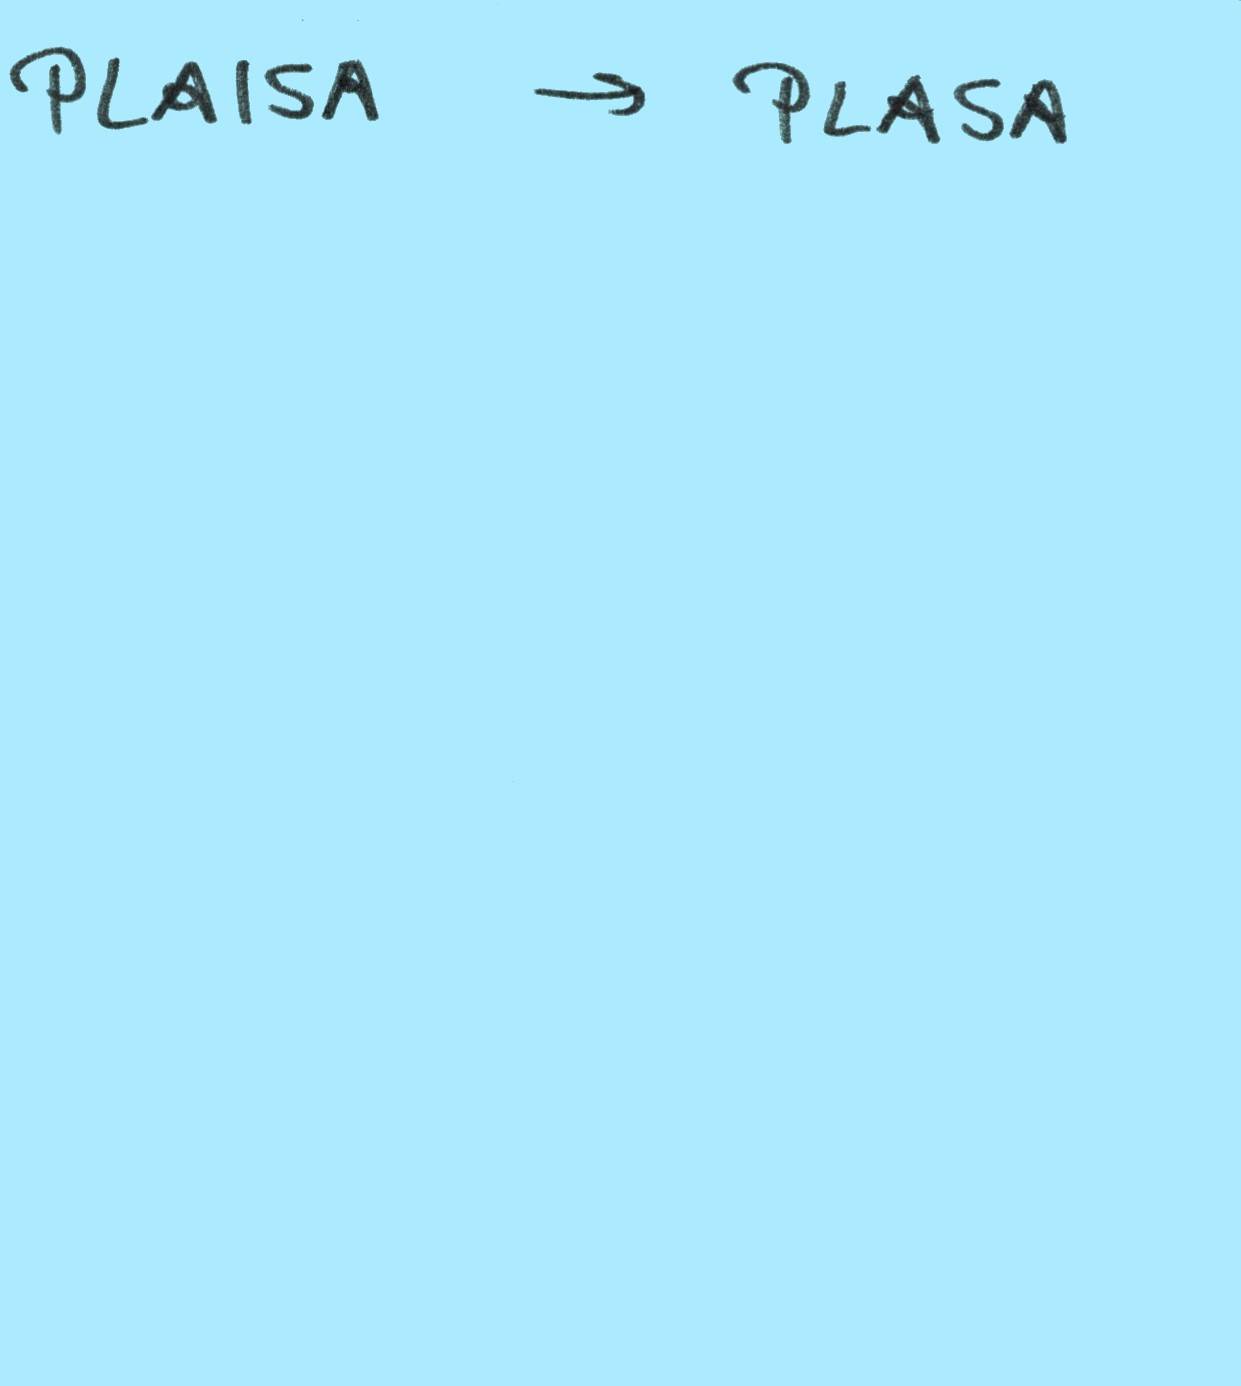 PLAISA → PLASA